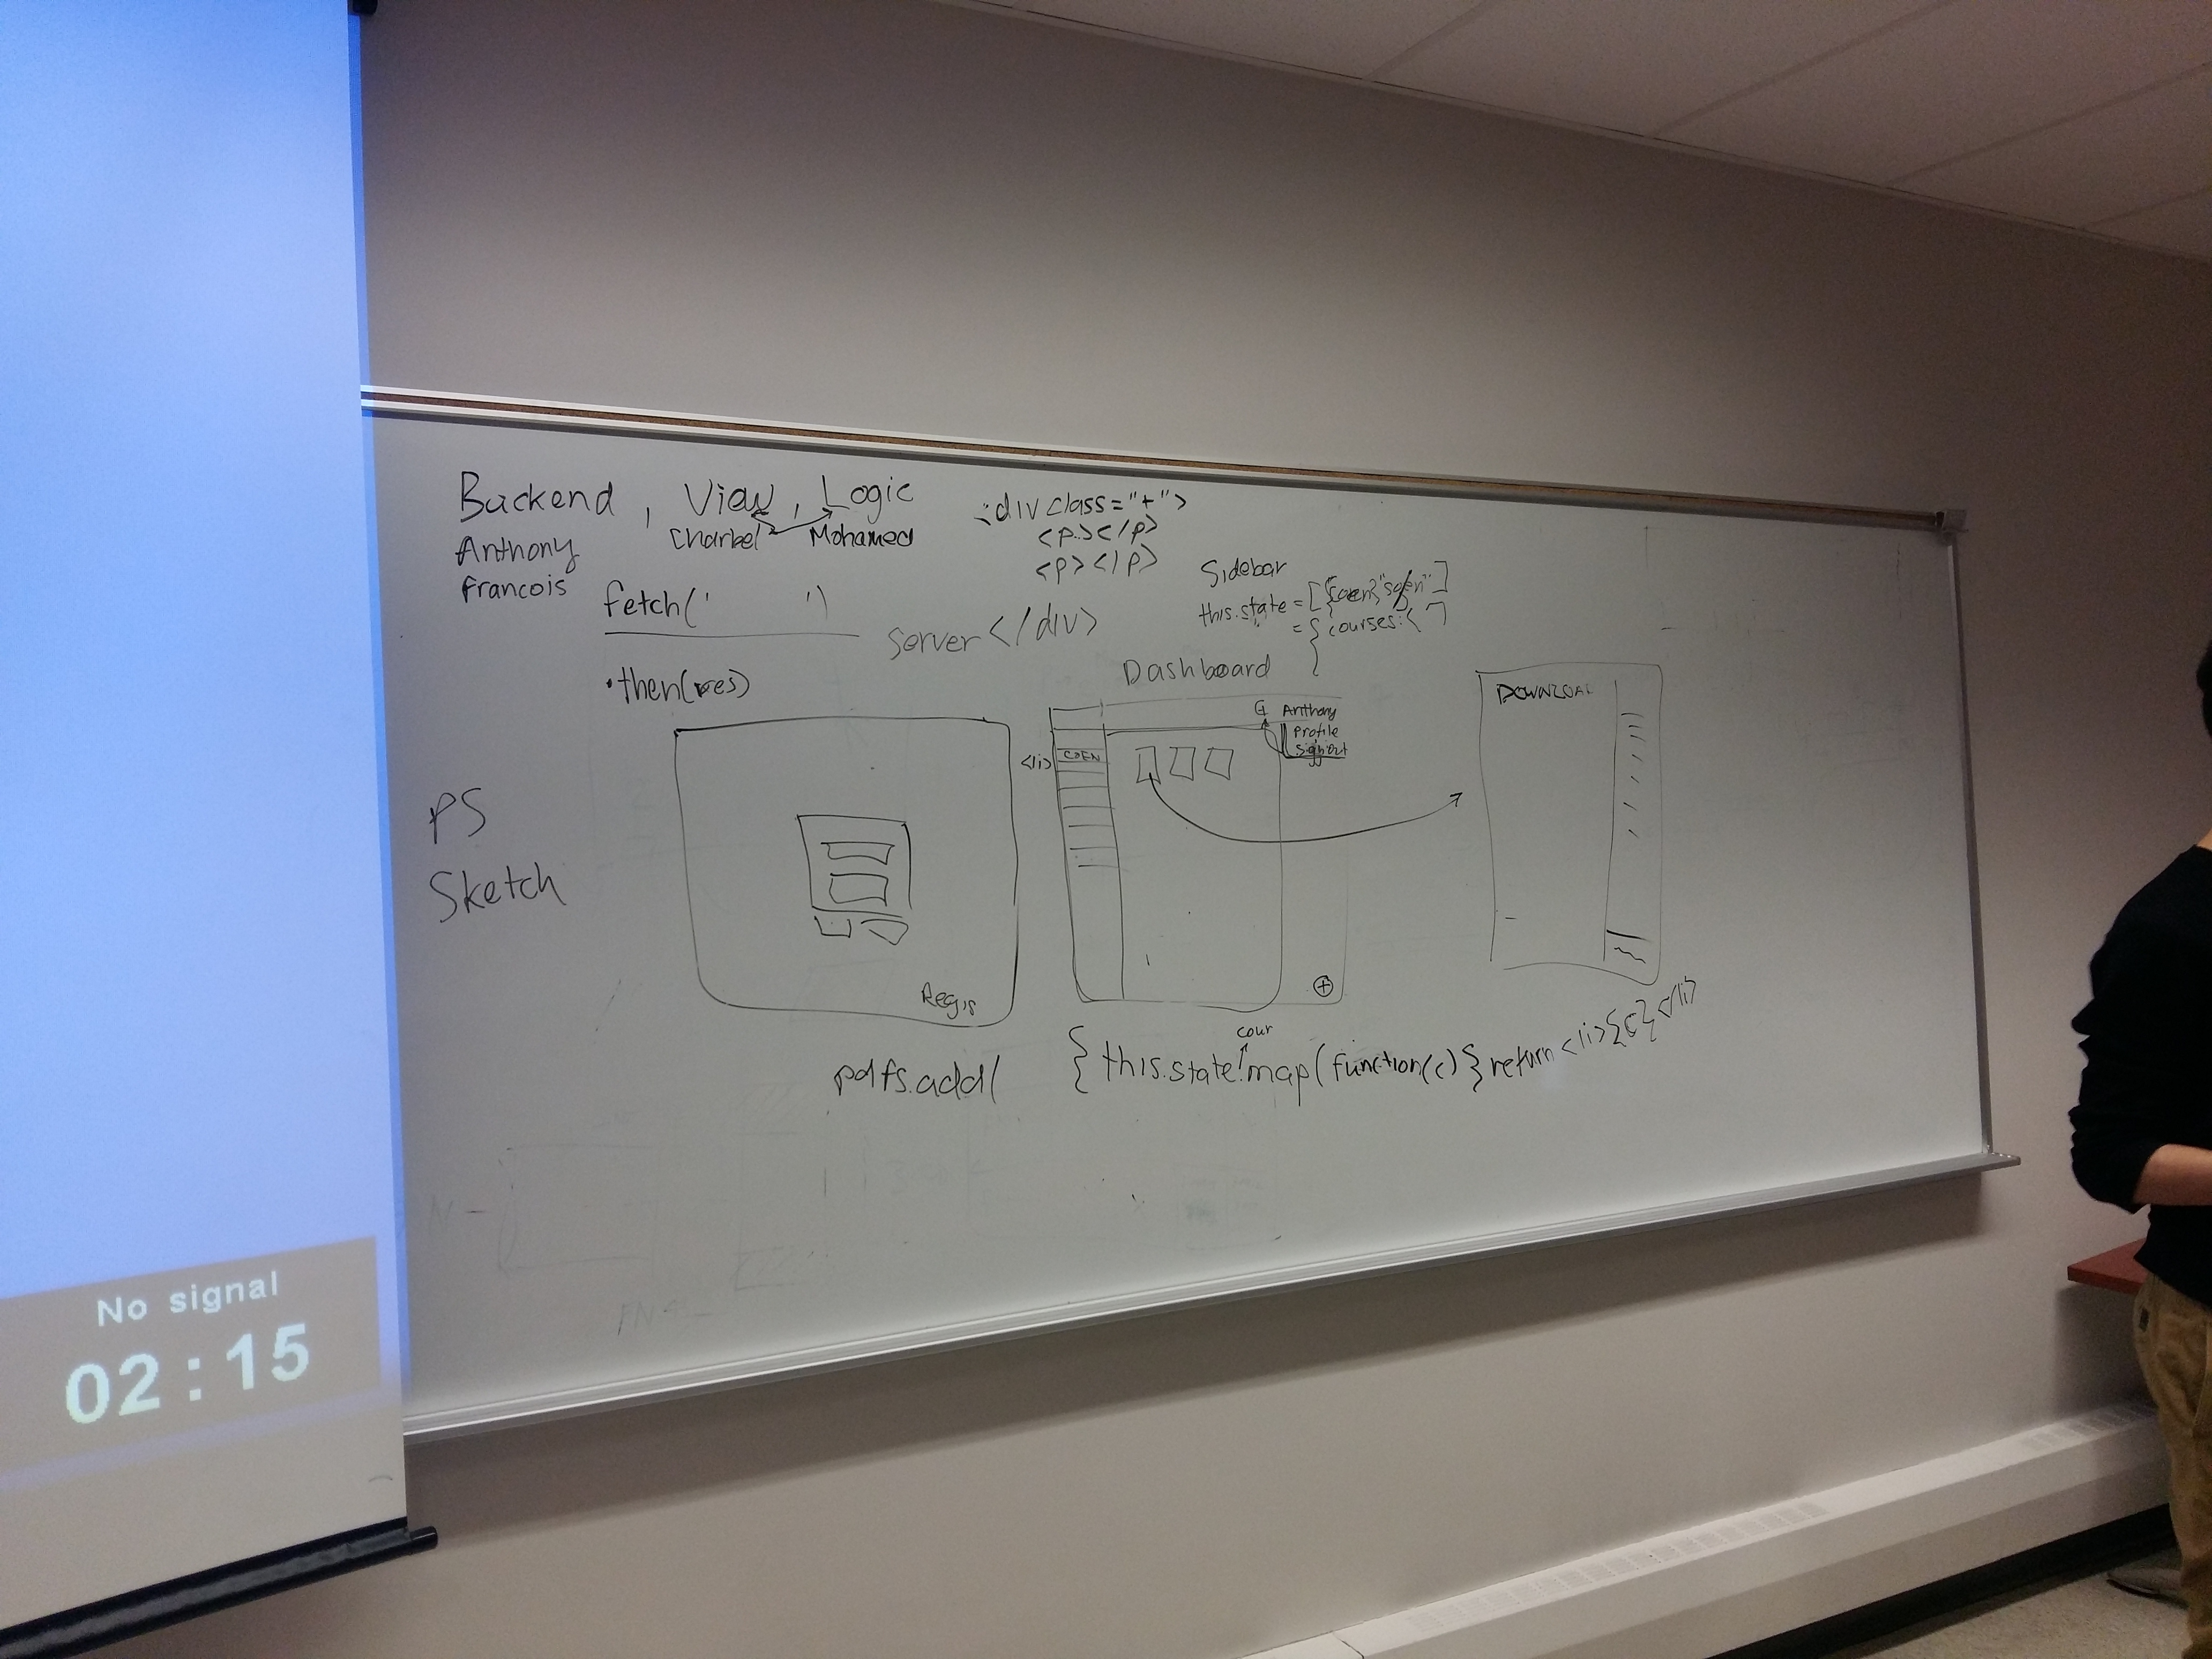 Backend, View, Logic
Anthony
Francois
Charbel
Mohamed
fetch(' ')
.then(res)
<div class="+">
<p></p>
<p></p>
</div>
server
Sidebar
this.state = [
= { courses: [ ]
}
Dashboard
G Anthony
Profile
Signout
<li>
COEN
DOWNLOA
PS
Sketch
Regis
cour
pdfs.add(
{ this.state.map(function(c) } return <li>{c}</li>
No signal
02:15